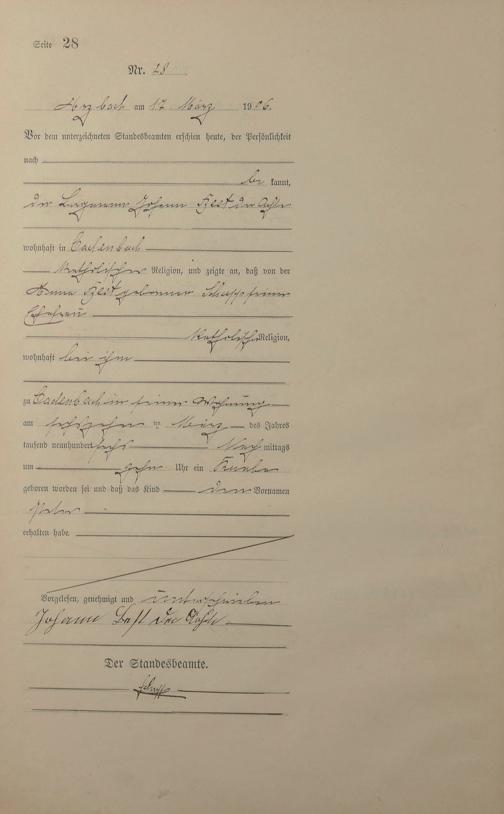 Seite 28
Nr. 28
Arzbach am 17 März 1906.
Vor dem unterzeichneten Standesbeamten erschien heute, der Persönlichkeit
nach
be kannt,
der Bergmann Johann Best der Achte
wohnhaft in Cadenbach
katholischer Religion, und zeigte an, daß von der
Anna Best geborenen Schupp seiner
Ehefrau
katholischer Religion,
wohnhaft bei ihm
zu Cadenbach in seiner Wohnung
am sechszehn ten März des Jahres
tausend neunhundert sechs Nach mittags
um zehn Uhr ein Knabe
geboren worden sei und daß das Kind den Vornamen
Peter
erhalten habe.
Vorgelesen, genehmigt und unterschrieben
Johann Best der Achte
Der Standesbeamte.